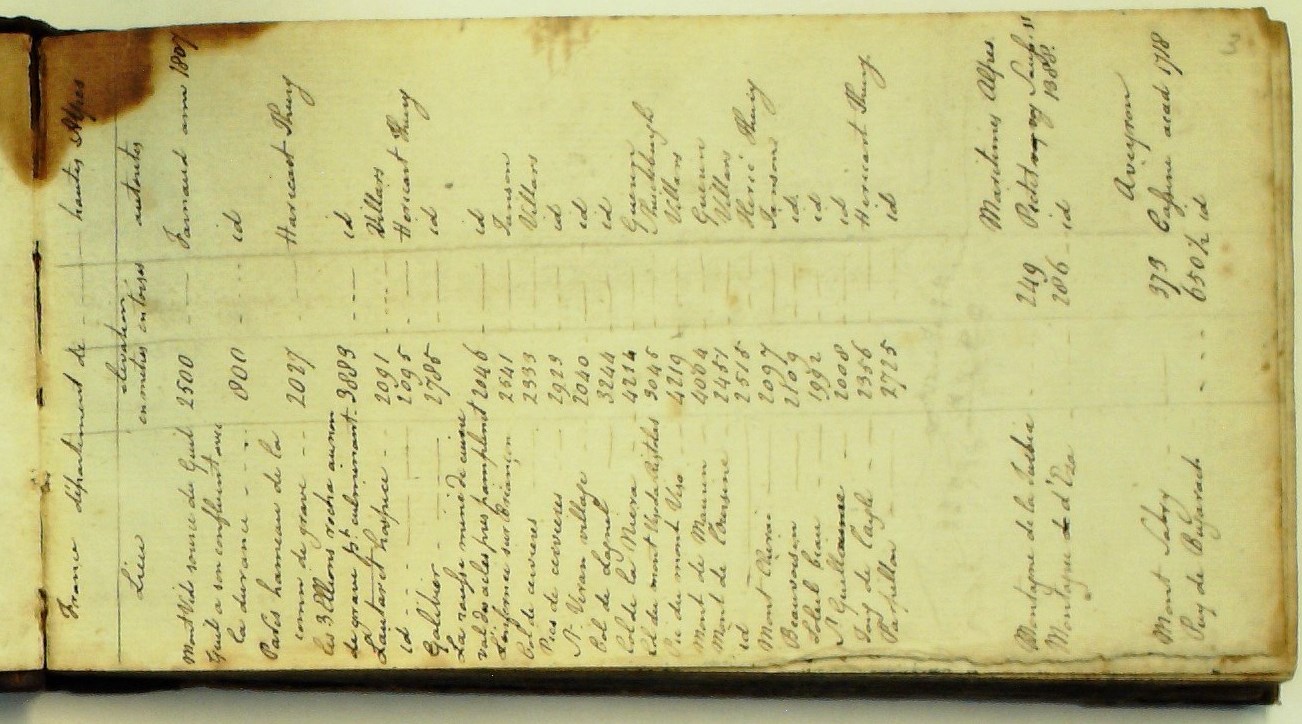 France département de hautes Alpes
élévation
Lieu en mètres en toises autorités
Mont Viso source du Guil 2500 Farnaud ann 1807
Guil a son confluent avec
la durance - - - 800 - - - id
Pariés hameau de la
comm de grave - - 2027 - - Hericart Thury
les 3 Ellions rocha au nom
de grave pt culminant 3883 - - - id
Lautaret hospice - - 2091 - - - Villars
id - - - 2095 - - - Hericart Thury
Galibier - - - 2785 - - - id
La rousse mine de cuivre
val des acles pres pramplinet 2046 - id
L'infernée sur Briançon 2541 Janson
Col de cervieres 2333 Villars
Pics de cervieres 2923 - id
St Véran village 2040 - id
Col de Lagnel 3244 - id
Col de la Niera 4214 Guerin
Col du mont Viso de Ristolas 3045 Shuckburgh
Pic du mont Viso 4219 Villars
Mont de Maurin 4004 Guerin
Mont de l'oursine 2451 Villars
id 2515 Heric Thury
Mont 2097 Janson
Beauvoisin 2109 id
Soleil beau 1992 id
St Guillaume 2008 id
Puy de l'aigle 2356 Hericart Thury
Parpillon 2725 id
Maritimes Alpes
Montagne de la Turbie - - 249
1388.
Montagne d'Eza 286 - id
Aveyron
Mont - 373 Cassini acad 1718
Puy de Bugarach - - - 650 1/2 id